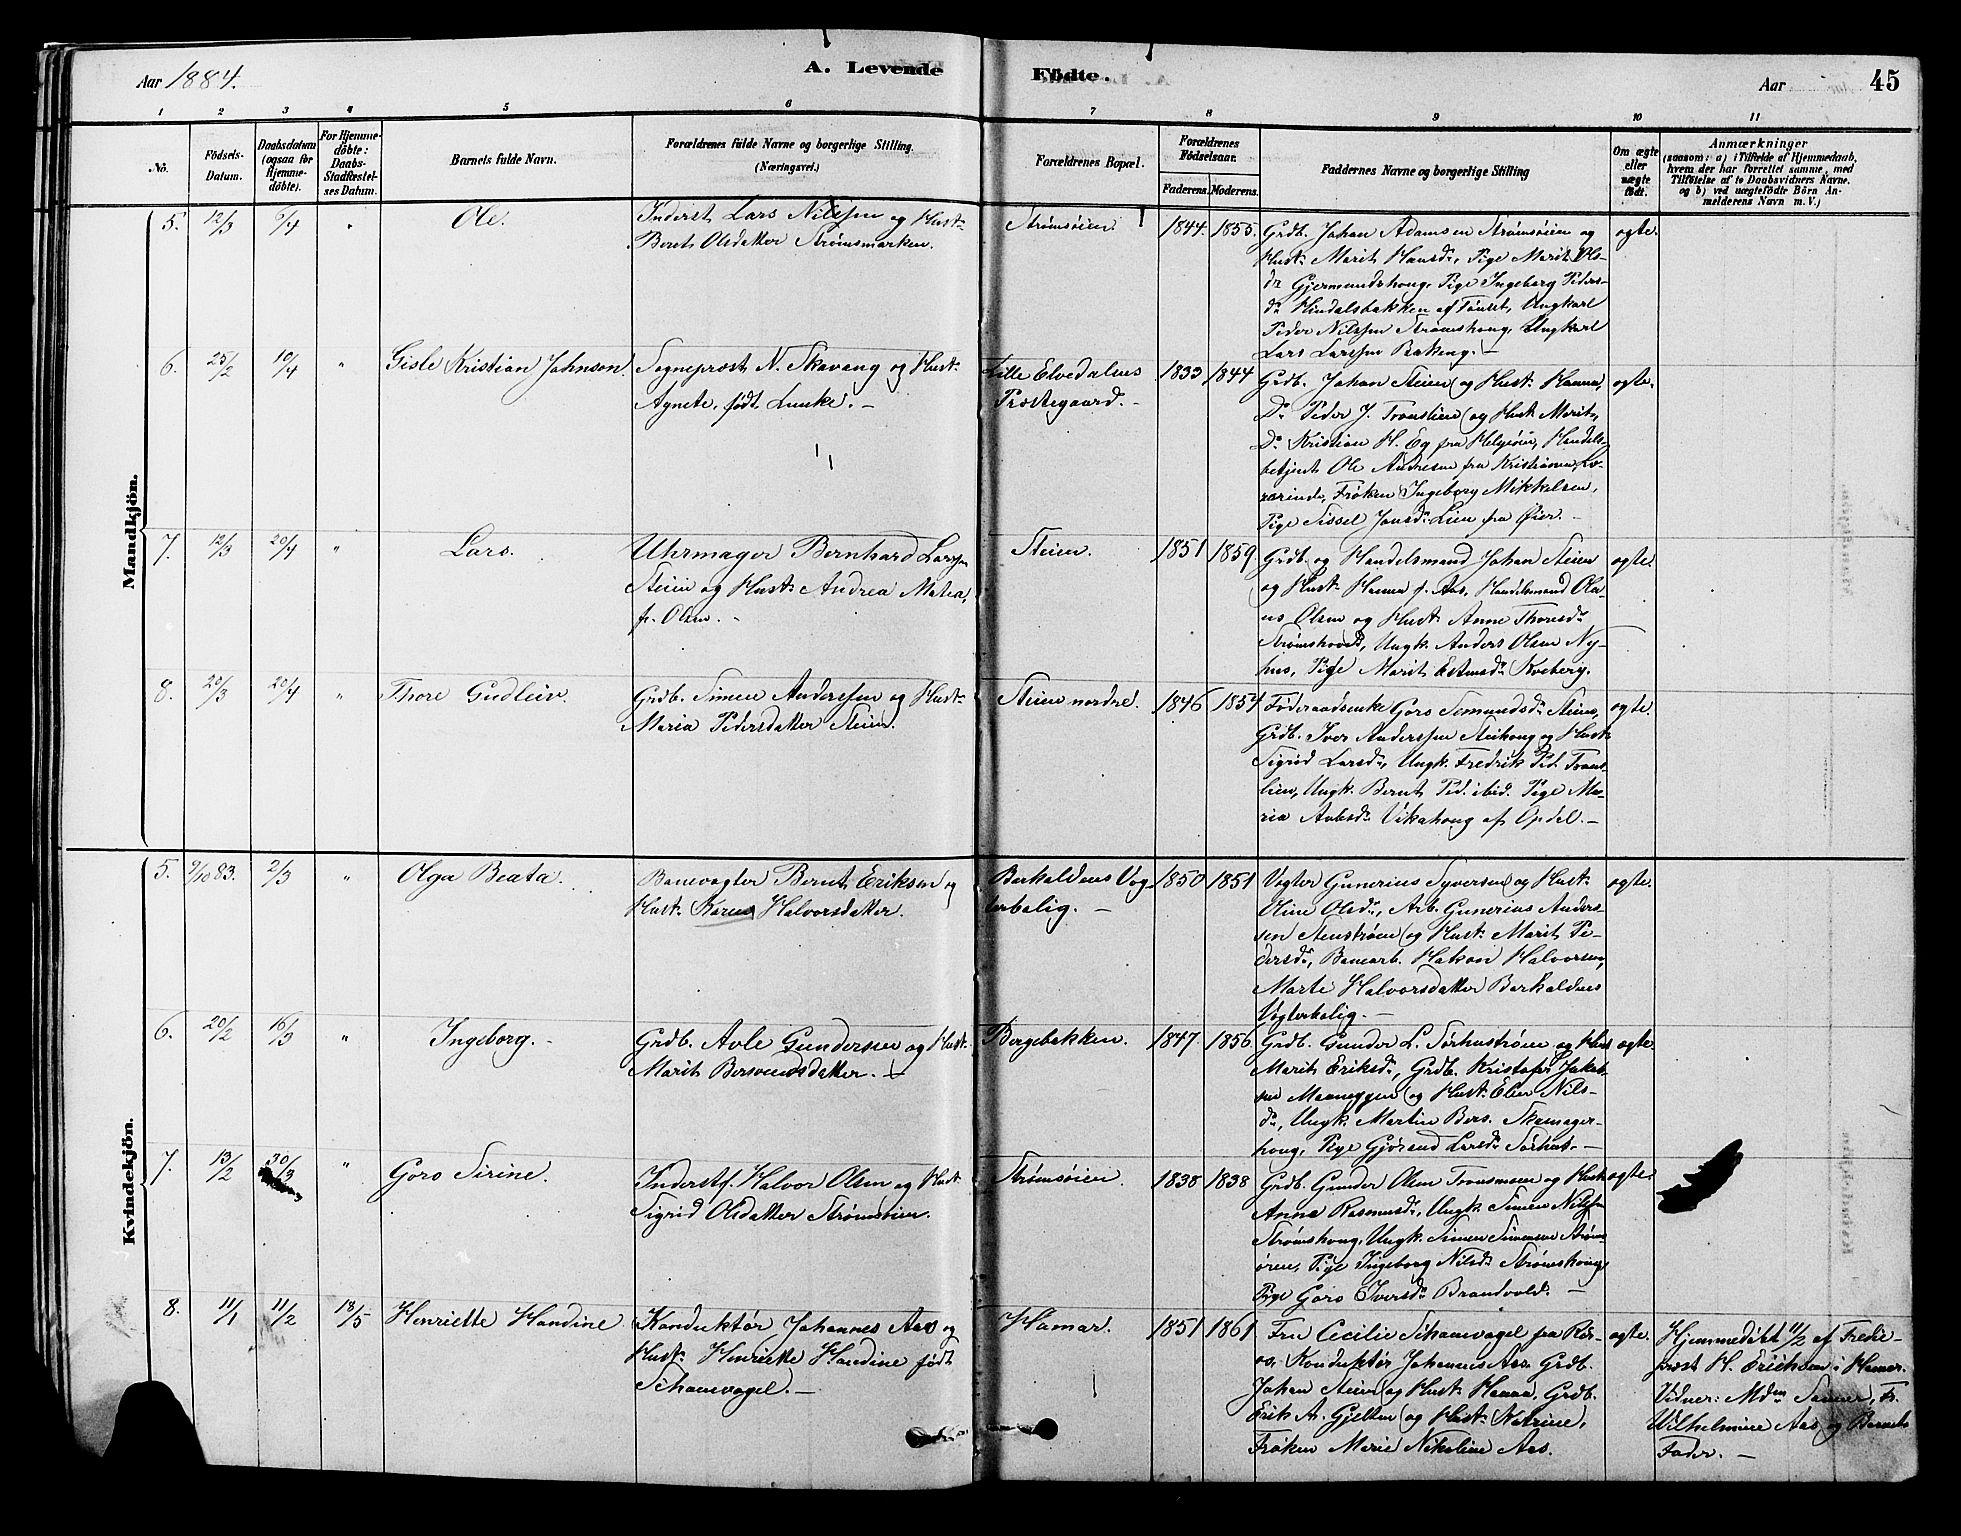 Aar 1884.
A. Levende
Födte.
Aar
45
1 2 3 4 5 6 7 8 9 10 11
No.
Födsels-
Datum.
Daabsdatum
(ogsaa for
Hjemme-
döbte).
For Hjemme-
döbte:
Daabs-
Stadfæstel-
ses Datum.
Barnets fulde Navn.
Forældrenes fulde Navne og borgerlige Stilling.
(Næringsvei.)
Forældrenes Bopæl.
Forældrenes
Födselsaar.
Faderens. Moderens.
Faddernes Navne og borgerlige Stilling
Om ægte
eller
uægte
födt.
Anmærkninger
(saasom: a) i Tilfælde af Hjemmedaab,
hvem der har forrettet samme, med
Tilföielse af to Daabsvidners Navne.
og b) ved uægtefödte Börn An-
melderens Navn m. V.)
Mandkjön.
5. 12/3 6/4 " Ole.
Inderst Lars Nilssen og Hust.
Berit Olsdatter Strømsmarken.
Strømsøien.
1844. 1855.
Grdb. Johan Adamsen Strømsøien og
Hust. Marit Hansd., Pige Marit Ols-
dr Gjermundshoug, Pige Ingeborg Peders-
dr Hindalsbakken af Tønset, Ungkarl
Peder Nilssen Strømshoug, Ungkarl
Lars Larssen Bakeng. –
ægte.
6. 25/2 10/4 " Gisle Kristian Johnson.
Sognepræst N. Skavang og Hust.
Agnete, født Lunke. –
Lille Elvedalens
Præstegaard. –
1833 1844
Grdb. Johan Steien (og Hust. Hanna,
Do Peder J. Tronslien (og Hust. Marit,
Do Kristian H. Eg fra Helgeøien, Handels-
betjent Ole Andresen fra Kristiania,
Frøken Ingeborg Mikkelsen,
Pige Sissel Jonsdr Lien fra Øier. –
ægte.
7. 12/3 20/4 " Lars.
Uhrmager Bernhard Larssen
Steien og Hust. Andrea Matea,
f. Olsen. –
Steien.
1851 1859
Grdb. og Handelsmand Johan Steien
og Hust. Hanna f. Aas, Handelsmand Ola-
us Olsen og Hust. Anne Thoresdr
Strømshoved, Ungk. Anders Olsen Ny-
hus, Pige Marit Estensdr Kveberg.
ægte.
8. 20/3 20/4 " Thore Gudleiv.
Grdb. Simen Anderssen og Hust.
Maria Pedersdatter Steien.
Steien nordre.
1846 1854
Føderaadsenke Goro Semundsdr Steien,
Grdb. Iver Anderssen Steihoug og Hust.
Sigrid Larsdr, Ungk. Fredrik Ped. Trons-
lien, Ungk. Bernt Ped. ibid. Pige Ma-
ria Avlesdr Vikahoug af Opdal. –
ægte.
Kvindekjön.
5. 9/10 83. 2/3 " Olga Beata.
Banevogter Bernt Eriksen og
Hust. Karen Halvorsdatter.
Barkaldens Vog-
terbolig. –
1850 1851
Vogter Gunerius Syversen (og Hust.
Oline Olsdr, Arb. Gunerius Anders-
sen Stenstrøm (og Hust. Marit Pe-
dersdr, Banearb. Hakon Halvorsen,
Marte Halvorsdatter Barkaldens
Vogterbolig. –
ægte.
6. 20/2 16/3 " Ingeborg. –
Grdb. Avle Gundersen og Hust.
Marit Bersvendsdatter. –
Bergebakken.
1847. 1856.
Grdb. Gunder L. Sørhustrøen og Hust
Marit Eriksdr, Grdb. Kristofer Jakob-
sen Maaneggen (og Hust. Elen Nils-
dr, Ungk. Martin Bers. Skomager-
houg, Pige Gjørund Larsdr Sørhus. –
ægte.
7. 13/2 30/3 " Goro Sirine.
Inderstf. Halvor Olsen og Hust.
Sigrid Olsdatter Strømsøien.
Strømsøien.
1838 1838
Grdb. Gunder Olsen Tronsmoen og Hust
Anna Rasmusdr, Ungk. Simen Nilssen
Strømshoug, Ungk. Simen Simensen Strøms-
øien, Pige Ingeborg Nilsdr Strømshoug,
Pige Goro Iversdr Brandvold. –
ægte.
8. 11/1 11/2 18/5 Henriette Handine
Konduktør Johannes Aas og
Hust. Henriette Handine født
Schanvogel. –
Hamar.
1851 1861
Fru Cecilie Schanvogel fra Rør-
os, Konduktør Johannes Aas, Grdb.
Johan Steien (og Hust. Hanna, Grdb.
Erik A. Gjelten (og Hust. Natrine,
Frøken Marie Nikoline Aas.
ægte.
Hjemmedøbt 11/2 af
præst H. Erichsen i Hamar.
Vidner: Mdm Sanner, Fr.
Wilhelmine Aas og Barnets
Fader. –